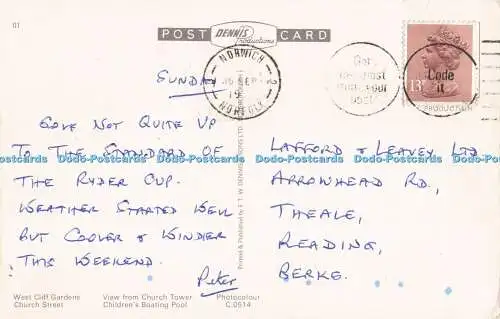 01
POST DENNIS Productions CARD
NORWICH
2 2
NORFOLK
Get
your
Code
it
13
SUNDAY
GOLF NOT QUITE UP
TO THE STANDARD OF
THE RYDER CUP.
WEATHER STARTED WELL
BUT COOLER & WINDIER
THIS WEEKEND.
Peter
Printed & Published by E. T. W. DENNIS & SONS LTD
LAFFORD & LEAVEY LTD
ARROWHEAD RD.,
THEALE,
READING,
BERKS.
Dodo-Postcards Dodo-Postcards Dodo-Postcards Dodo-Postcards Dodo-Postcards
West Cliff Gardens
Church Street
View from Church Tower
Children's Boating Pool
Photocolour
C.0514